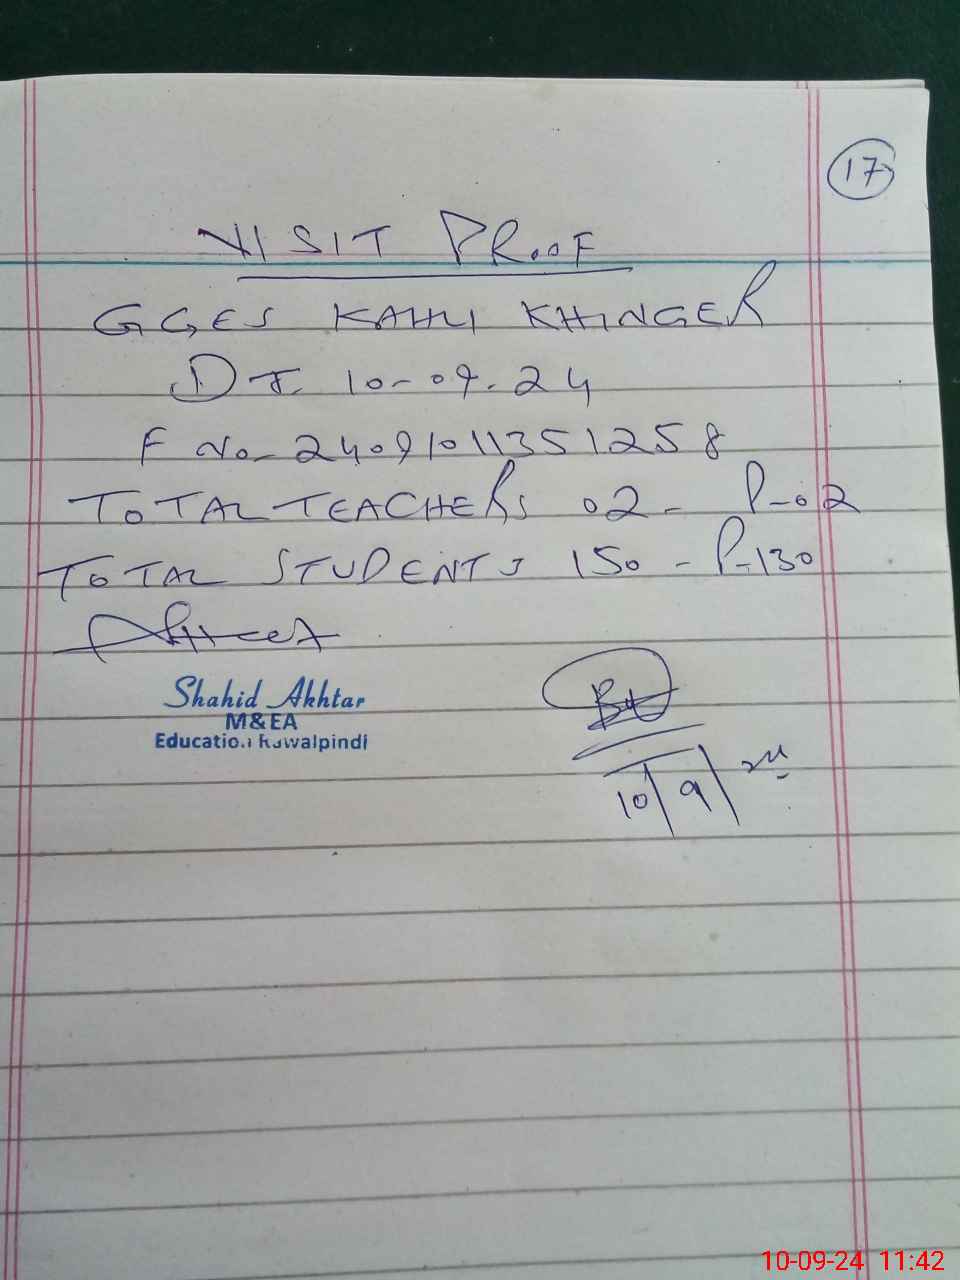 17
VISIT PROOF
GGES KAHLI KHINGER
DT. 10-09-24
F No- 24091011351258
TOTAL TEACHERS 02 - P-02
TOTAL STUDENTS 150 - P-130
Shahid Akhtar
M&EA
Education Rawalpindi
10/9/24
10-09-24 11:42